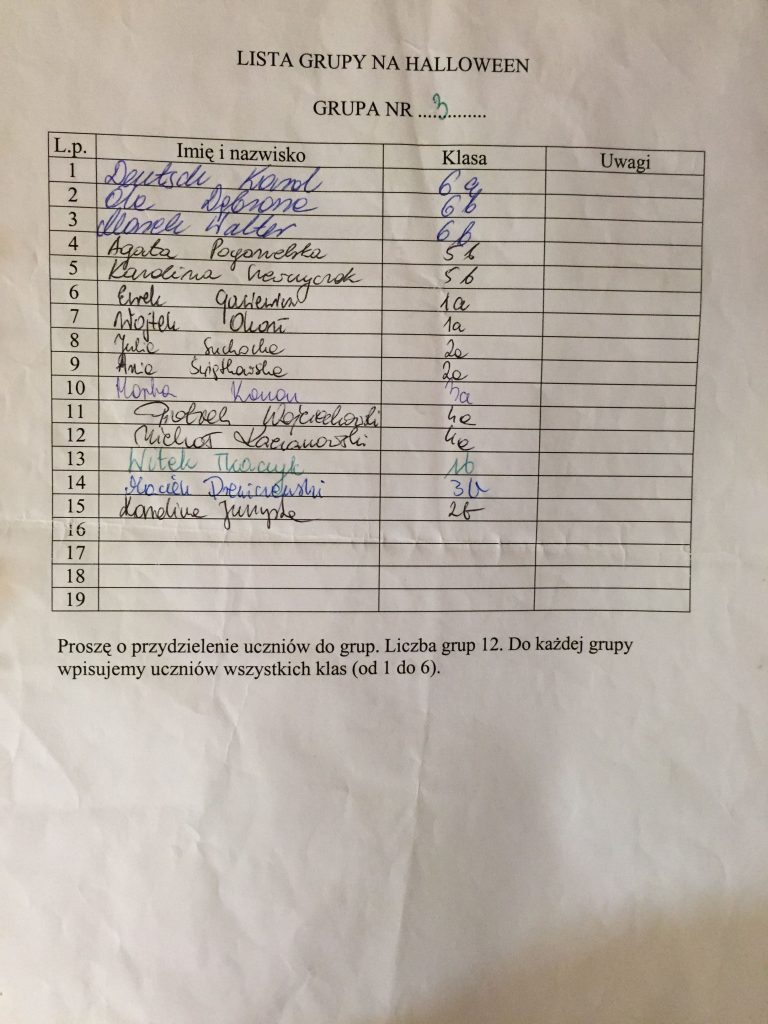 LISTA GRUPY NA HALLOWEEN
GRUPA NR ...3..........
L.p. Imię i nazwisko Klasa Uwagi
1 Deutsch Karol 6 a
2 Ola Dębska 6 b
3 Marek Walter 6 b
4 Agata Pogorzelska 5 b
5 Karolina 5 b
6 1a
7 Wojtek Okoń 1a
8 Julia Suchocka 2a
9 Ania Świątkowska 2a
10 Konon 3a
11 Piotrek Wojciechowski 4a
12 Michał Kacianowski 4a
13 Witek Tkaczyk 1b
14 Maciek 3b
15 Karolina 2b
16
17
18
19
Proszę o przydzielenie uczniów do grup. Liczba grup 12. Do każdej grupy
wpisujemy uczniów wszystkich klas (od 1 do 6).